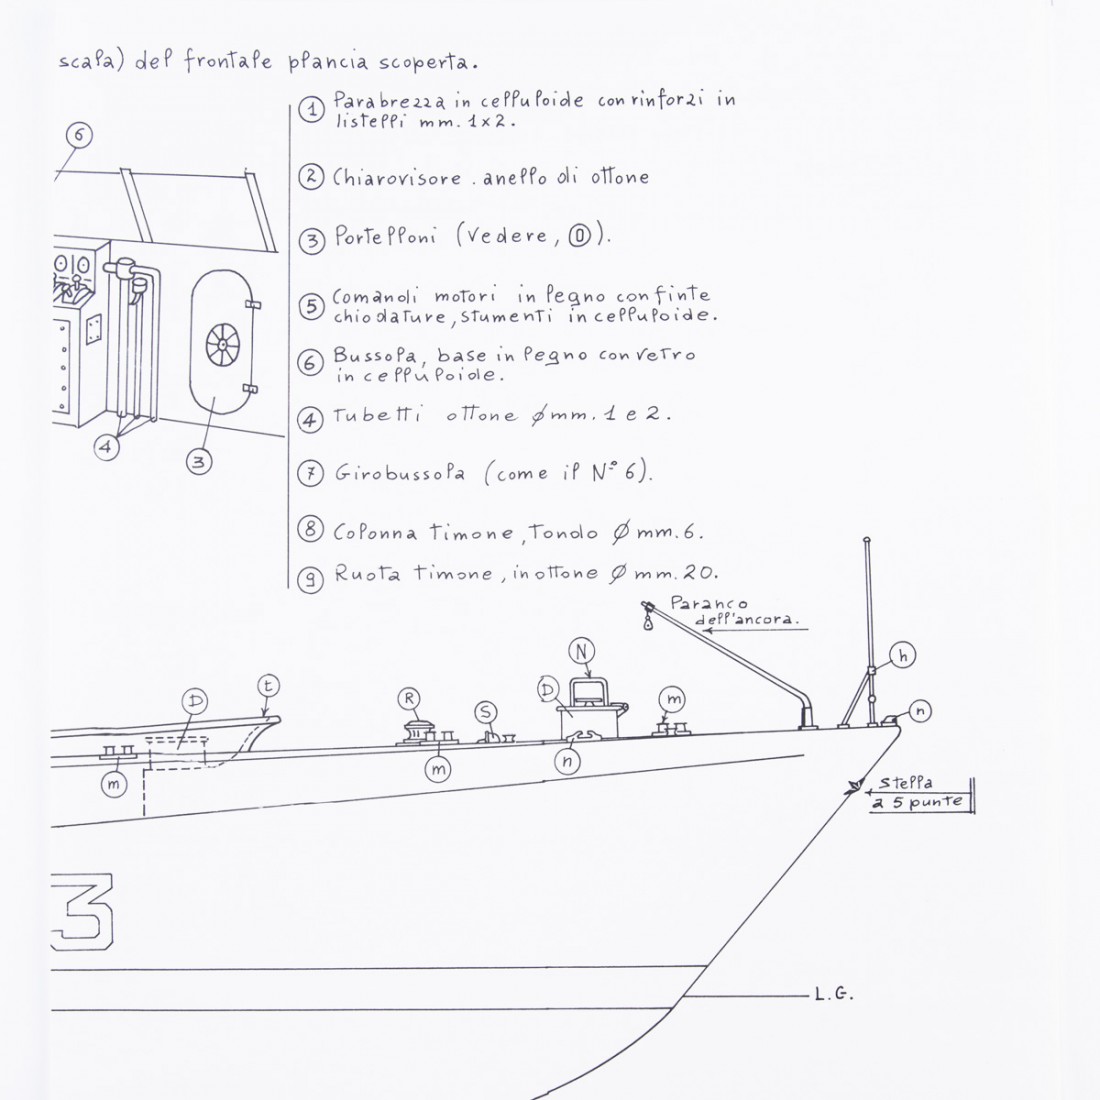 scala) del frontale plancia scoperta.
6
1 Parabrezza in celluloide con rinforzi in
listelli mm. 1x2.
2 Chiarovisore . anello di ottone
3 Portelloni (Vedere, O).
5 Comandi motori in legno con finte
chiodature, stumenti in celluloide.
6 Bussola, base in legno con vetro
in celluloide.
4 Tubetti ottone ø mm. 1 e 2.
7 Girobussola (come il N° 6).
8 Colonna timone, Tondo ø mm. 6.
9 Ruota timone, in ottone ø mm. 20.
4
3
Paranco
dell'ancora.
N
h
R
D
t
D
S
m
n
m
m
n
stella
a 5 punte
3
L.G.